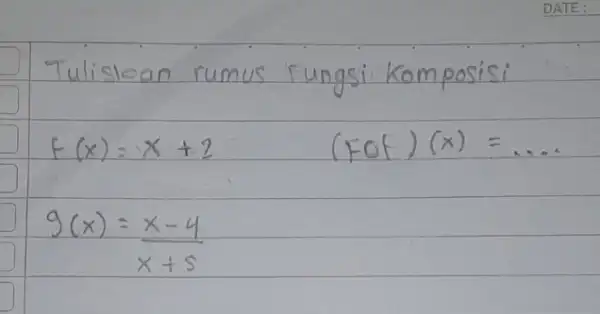 DATE:
Tuliskan rumus fungsi komposisi
f(x) = x + 2 (fof)(x) = ....
g(x) = x - 4
x + 5